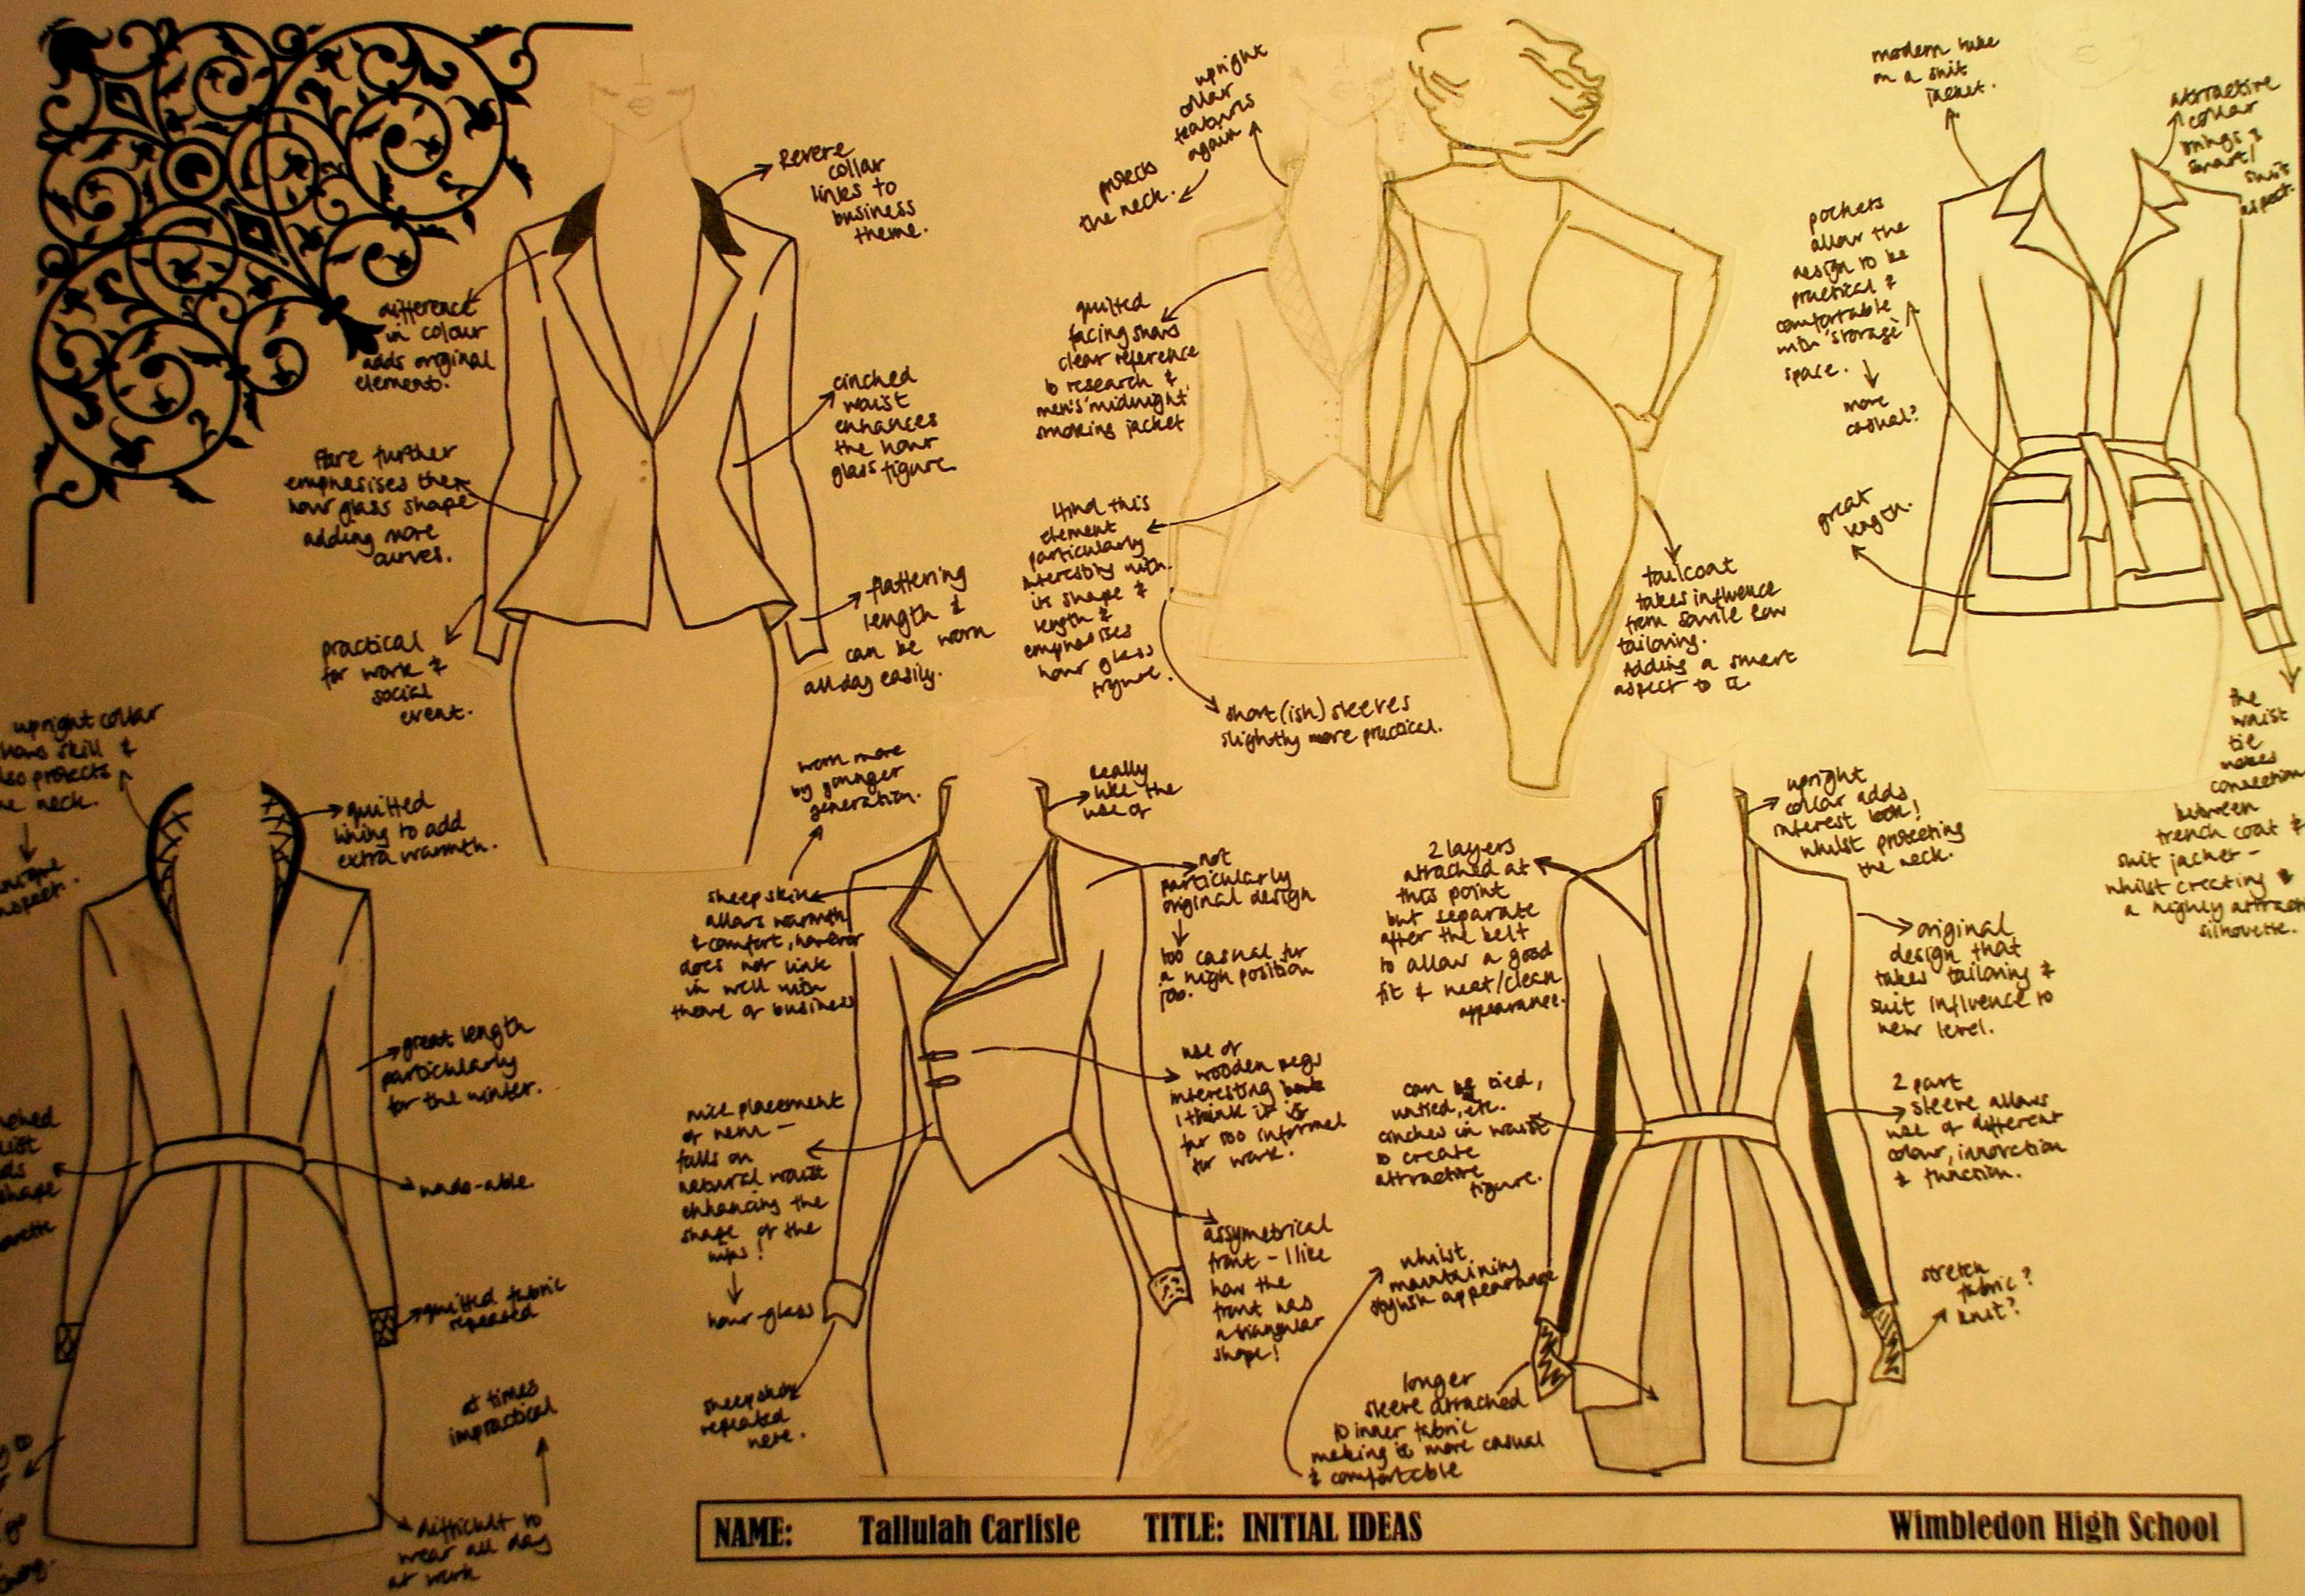 Revere
collar
links to
business
theme.
difference
in colour
adds original
element.
cinched
waist
enhances
the hour
glass figure
flare further
emphasises the
hour glass shape
adding more
curves.
flattering
length &
can be worn
all day easily.
practical
for work &
social
event.
upright
collar
features
again
protects
the neck.
quilted
facing shows
clear reference
to research &
men's 'midnight'
smoking jacket
I find this
element
particularly
interesting with
its shape &
length &
emphasises
hour glass
figure.
short(ish) sleeves
slightly more practical.
tailcoat
takes influence
from savile row
tailoring.
Adding a smart
aspect to it.
modern take
on a suit
jacket.
attractive
collar
brings a
smart/
suit
aspect.
pockets
allow the
design to be
practical &
comfortable
with 'storage'
space.
more
casual?
great
length.
the
waist
tie
makes
connection
between
trench coat &
suit jacket -
whilst creating
a highly
silhouette.
upright collar
skill &
protects
neck.
quilted
lining to add
extra warmth.
great length
particularly
for the winter.
shape
quilted fabric
repeated
at times
impractical
difficult to
wear all day
at work
worn more
by younger
generation.
Really
like the
use of
sheepskin
allows warmth
& comfort, however
does not link
in well with
theme of business
not
particularly
original design
too casual for
a high position
job.
use of
wooden pegs
interesting
I think it is
far too informal
for work.
nice placement
of hem -
falls on
natural waist
enhancing the
shape of the
hips!
hour-glass
assymetrical
front - I like
how the
front has
a triangular
shape!
sheepskin
repeated
here.
upright
collar adds
interest
whilst protecting
the neck.
2 layers
attached at
this point
but separate
after the belt
to allow a good
fit & neat/clean
appearance.
original
design that
takes tailoring &
suit influence to
new level.
can be tied,
untied, etc.
cinches in waist
to create
attractive
figure.
2 part
sleeve allows
use of different
colour, innovation
& function.
whilst
maintaining
stylish appearance
stretch
fabric?
knit?
longer
sleeve attached
to inner fabric
making it more casual
& comfortable
NAME: Tallulah Carlisle TITLE: INITIAL IDEAS Wimbledon High School